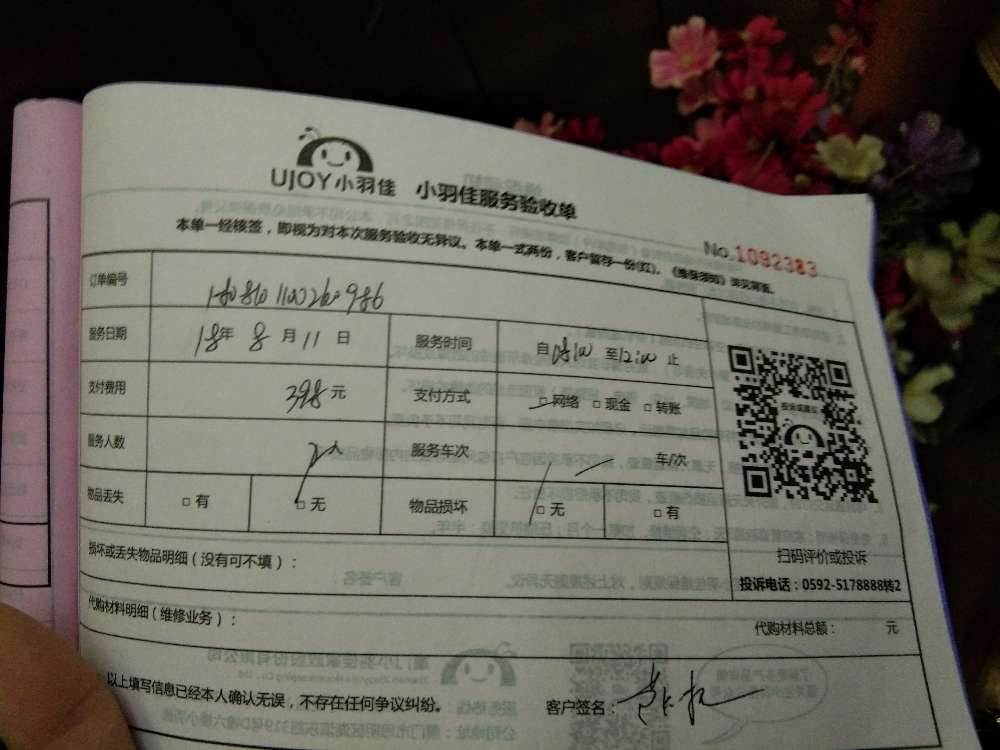 UJOY小羽佳 小羽佳服务验收单
本单一经核签，即视为对本次服务验收无异议。本单一式两份，客户留存一份(红)。《维保须知》详见背面。
No.1092383
订单编号
服务日期 18年 8月11日 服务时间 自08:00至12:00止
支付费用 398元 支付方式 □网络 □现金 □转账
服务人数 2人 服务车次 车/次
物品丢失 □有 □无 物品损坏 □无 □有
扫码评价或投诉
投诉电话：0592-5178888转2
损坏或丢失物品明细（没有可不填）：
代购材料明细（维修业务）：
代购材料总额： 元
以上填写信息已经本人确认无误，不存在任何争议纠纷。 客户签名：